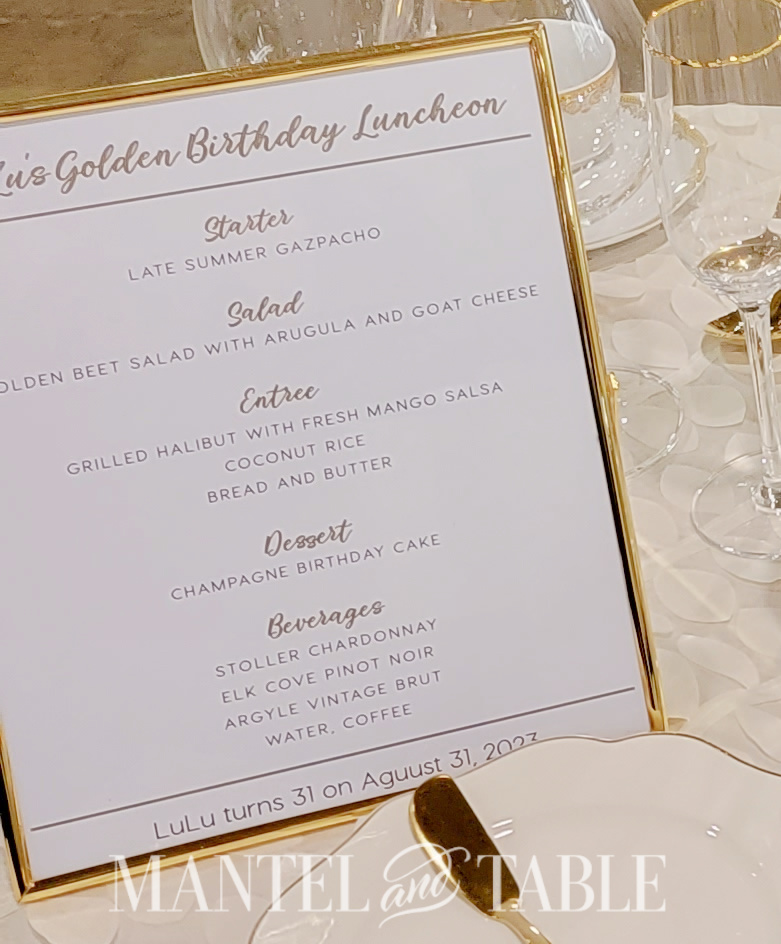 Lu's Golden Birthday Luncheon
Starter
LATE SUMMER GAZPACHO
Salad
OLDEN BEET SALAD WITH ARUGULA AND GOAT CHEESE
Entree
GRILLED HALIBUT WITH FRESH MANGO SALSA
COCONUT RICE
BREAD AND BUTTER
Dessert
CHAMPAGNE BIRTHDAY CAKE
Beverages
STOLLER CHARDONNAY
ELK COVE PINOT NOIR
ARGYLE VINTAGE BRUT
WATER, COFFEE
LuLu turns 31 on Aguust 31, 2023
MANTEL and TABLE